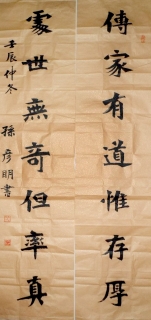 傳家有道惟存厚
處世無奇但率真
壬辰仲冬
孫彦明書